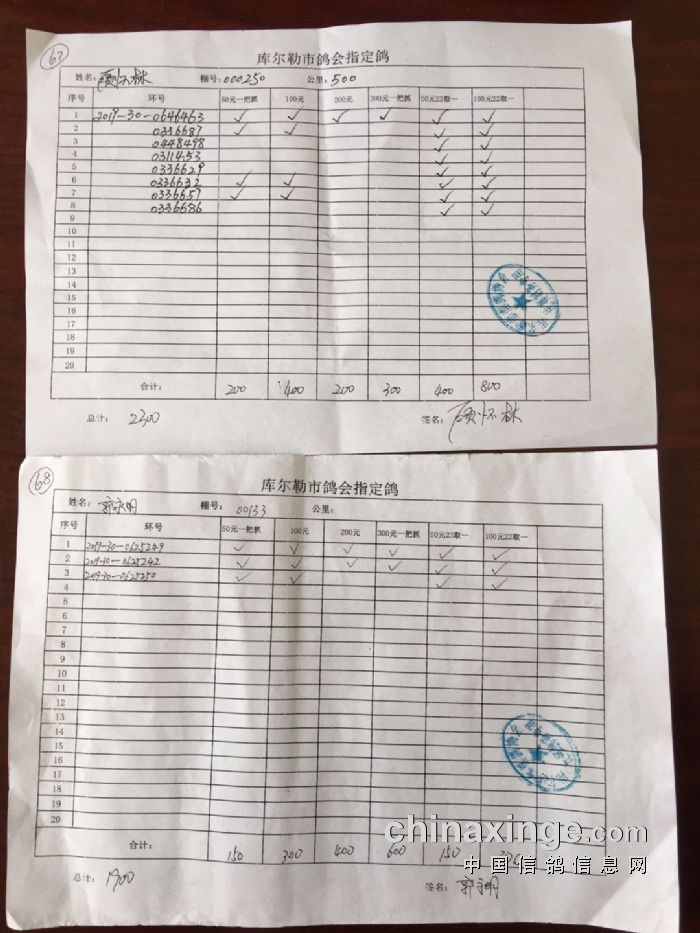 67
库尔勒市鸽会指定鸽
姓名： 顾怀林 棚号：000250 公里：500
序号 环号 50元一把抓 100元 200元 300元一把抓 50元22取一 100元22取一
1 2019-30-0646463 ✓ ✓ ✓ ✓ ✓ ✓
2 0336687 ✓ ✓ ✓ ✓
3 0448498 ✓ ✓
4 0311453 ✓ ✓
5 0336629 ✓ ✓
6 0336632 ✓ ✓ ✓ ✓
7 0336657 ✓ ✓ ✓ ✓
8 0336686 ✓ ✓
9
10
11
12
13
14
15
16
17
18
19
20
合计： 200 400 200 300 400 800
总计： 2300 签名： 顾怀林
68
库尔勒市鸽会指定鸽
姓名： 郭永明 棚号： 00133 公里：
序号 环号 50元一把抓 100元 200元 300元一把抓 50元22取一 100元22取一
1 2019-30-0625249 ✓ ✓ ✓ ✓ ✓ ✓
2 2019-30-0625242 ✓ ✓ ✓ ✓ ✓ ✓
3 2019-30-0625250 ✓ ✓ ✓ ✓
4
5
6
7
8
9
10
11
12
13
14
15
16
17
18
19
20
合计： 150 300 400 600 150
总计： 1900 签名： 郭永明
chinaxinge.com
中国信鸽信息网